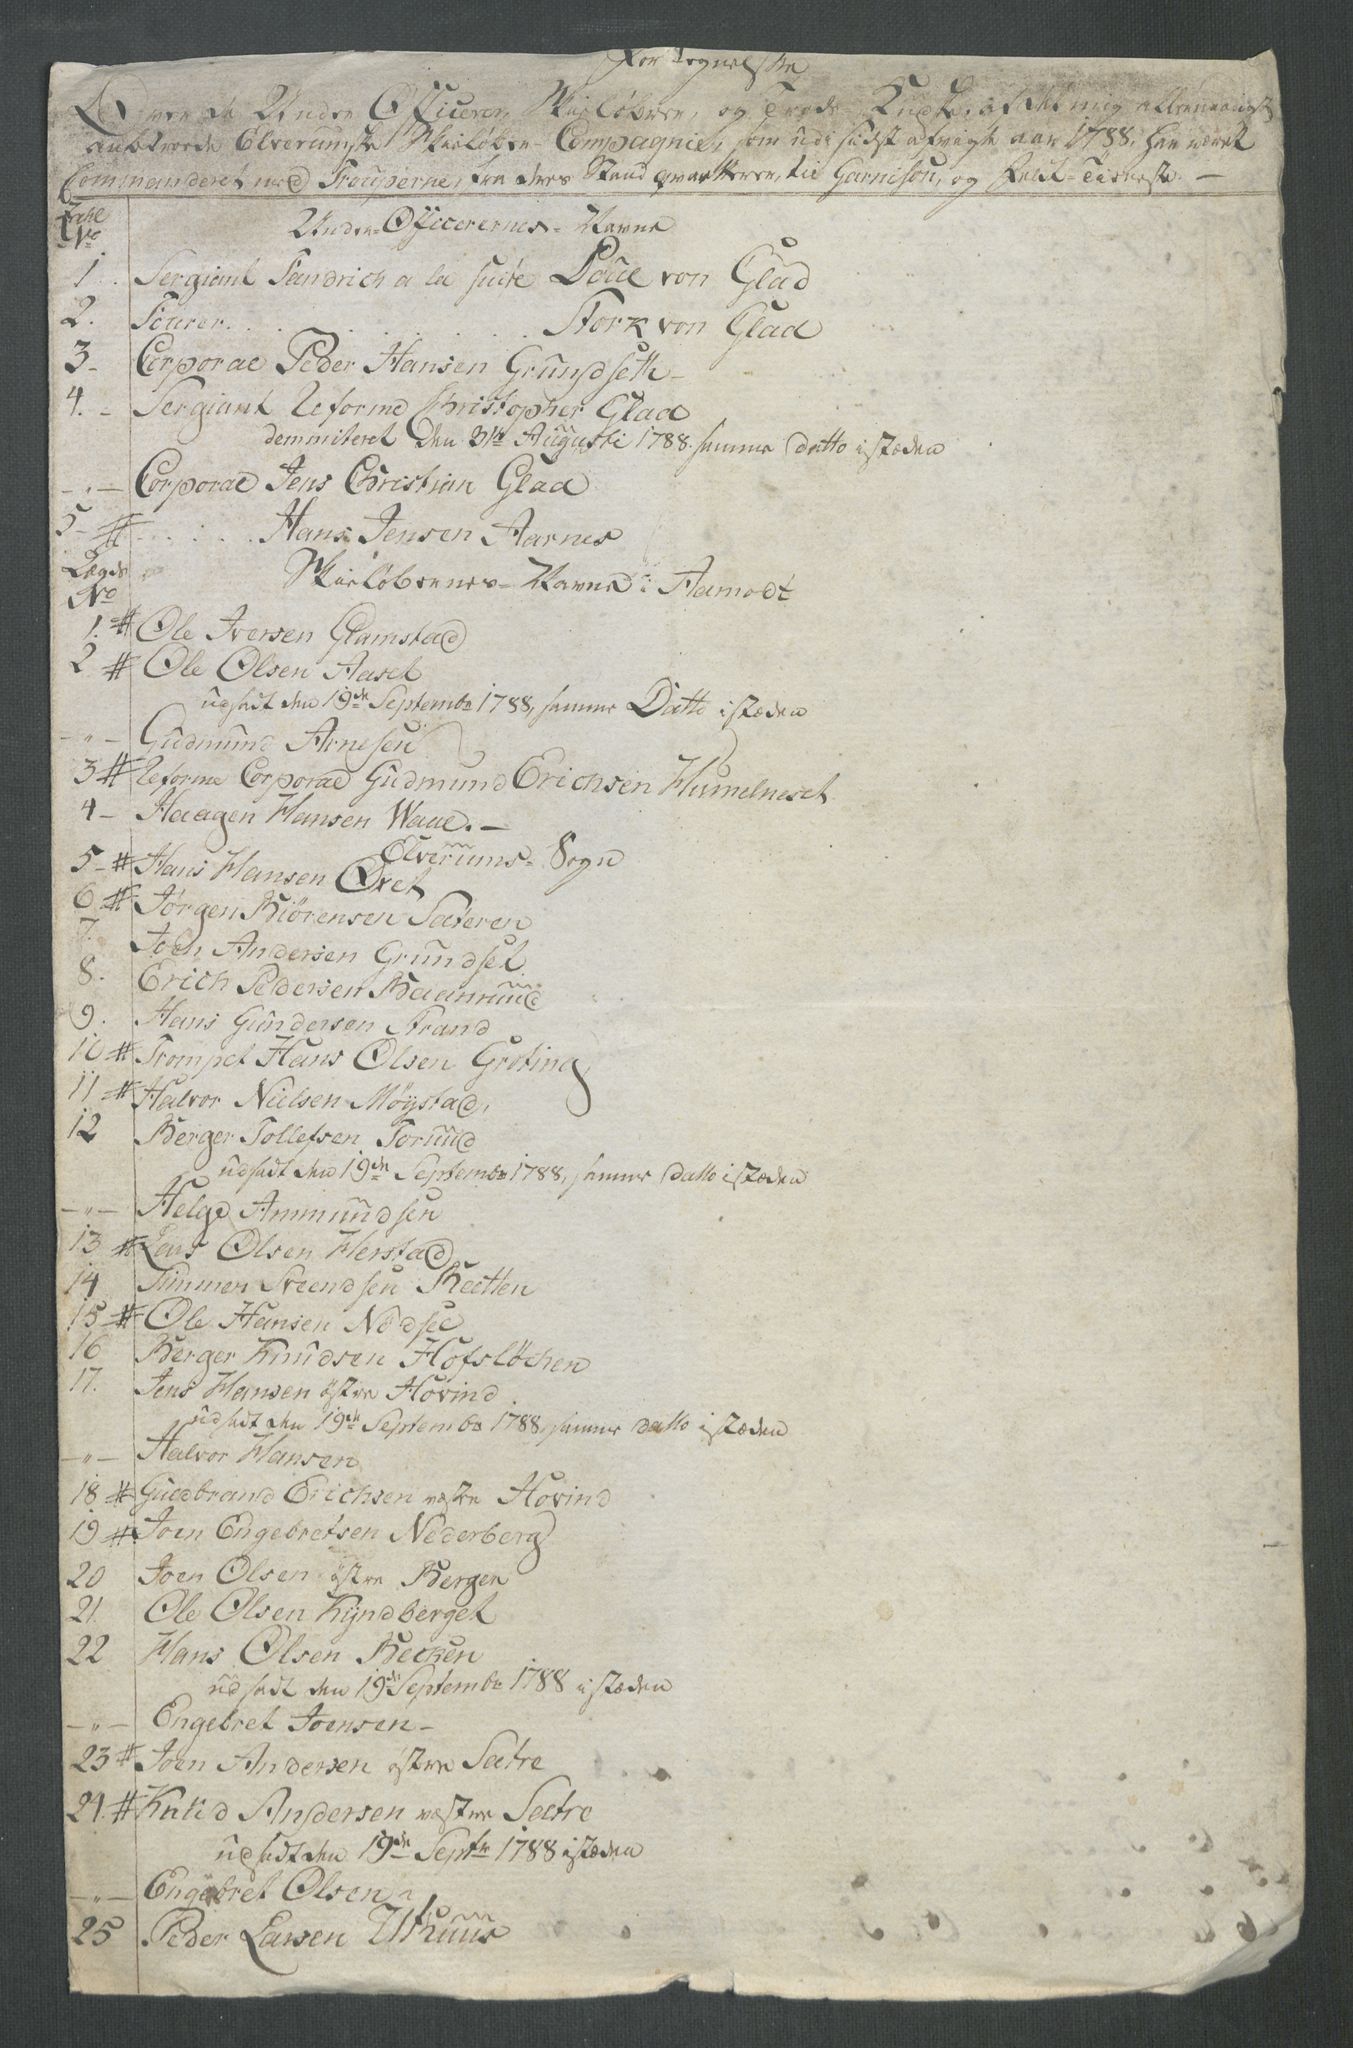 Fortegnelse
Over de Under Officerer, Skieløbere, og Trode-Kudske af det mig allernaadigst
anbetroede Elverumske Skieløber-Compagnie, som udi sidst afvigte aar 1788, har været
Commanderet med Trouperne, fra deres Stand qvarterer, til Garnison, og Felt-Tieneste. —
Tahl
No
Under-Officerernes-Navne
1. Sergiant Fandrich a la suite Poul von Glad
2. Fourer. . . . . . . Stork von Glad
3- Corporal Peder Hansen Grundseth-
4. - Sergiant Reforme Christopher Glad
demmiteret den 31te Augusti 1788. samme Datto i stæden
- " - Corporal Jens Christian Glad
5- # . . . . . Hans Jensen Aarnes
Lægds
No
Skieløbernes-Navne i Aamodt
1. # Ole Iversen Glomstad
2 # Ole Olsen Aaset
udsadt den 19de Septembr 1788, samme Datto i stæden
- " - Gudmund Arnesen
3 # Reforme Corporal Gudmund Erichsen Humelneset
4- Haagen Hansen Waal. —
Elverums-Sogn
5- # Hans Hansen Øret
6 # Jørgen Biørensen Sæteren
7. Joen Andersen Grundset
8. Erich Pedersen Baamund
9. Hans Gundersen Strand
10 # Trompet Hans Olsen Grøting
11 # Halvor Nielsen Møystad,
12 Berger Tollefsen Torud
udsadt den 19de Septembr 1788, samme Datto i stæden
- " - Helge Ammundsen
13 # Lars Olsen Herstad
14 Simmen Svendsen Kletten
15 # Ole Hansen Nødset
16 Berger Knudsen Hofsløchen
17. Jens Hansen østre Hovind
udsadt den 19de Septembr 1788, samme Datto i stæden
- " - Halvor Hansen
18 # Guldbrand Erichsen vestre Hovind
19 # Joen Engebretsen Nederberg
20 Joen Olsen østre Bergen
21. Ole Olsen Kyndberget
22 Hans Olsen Becken
udsadt den 19de Septembr 1788 i stæden
- " - Engebret Joensen-
23 # Joen Andersen østre Sætre
24. # Knud Andersen vestre Sætre
udsadt den 19de Septr 1788 i stæden
- " - Engebret Olsen-
25 Peder Larsen Uthuus